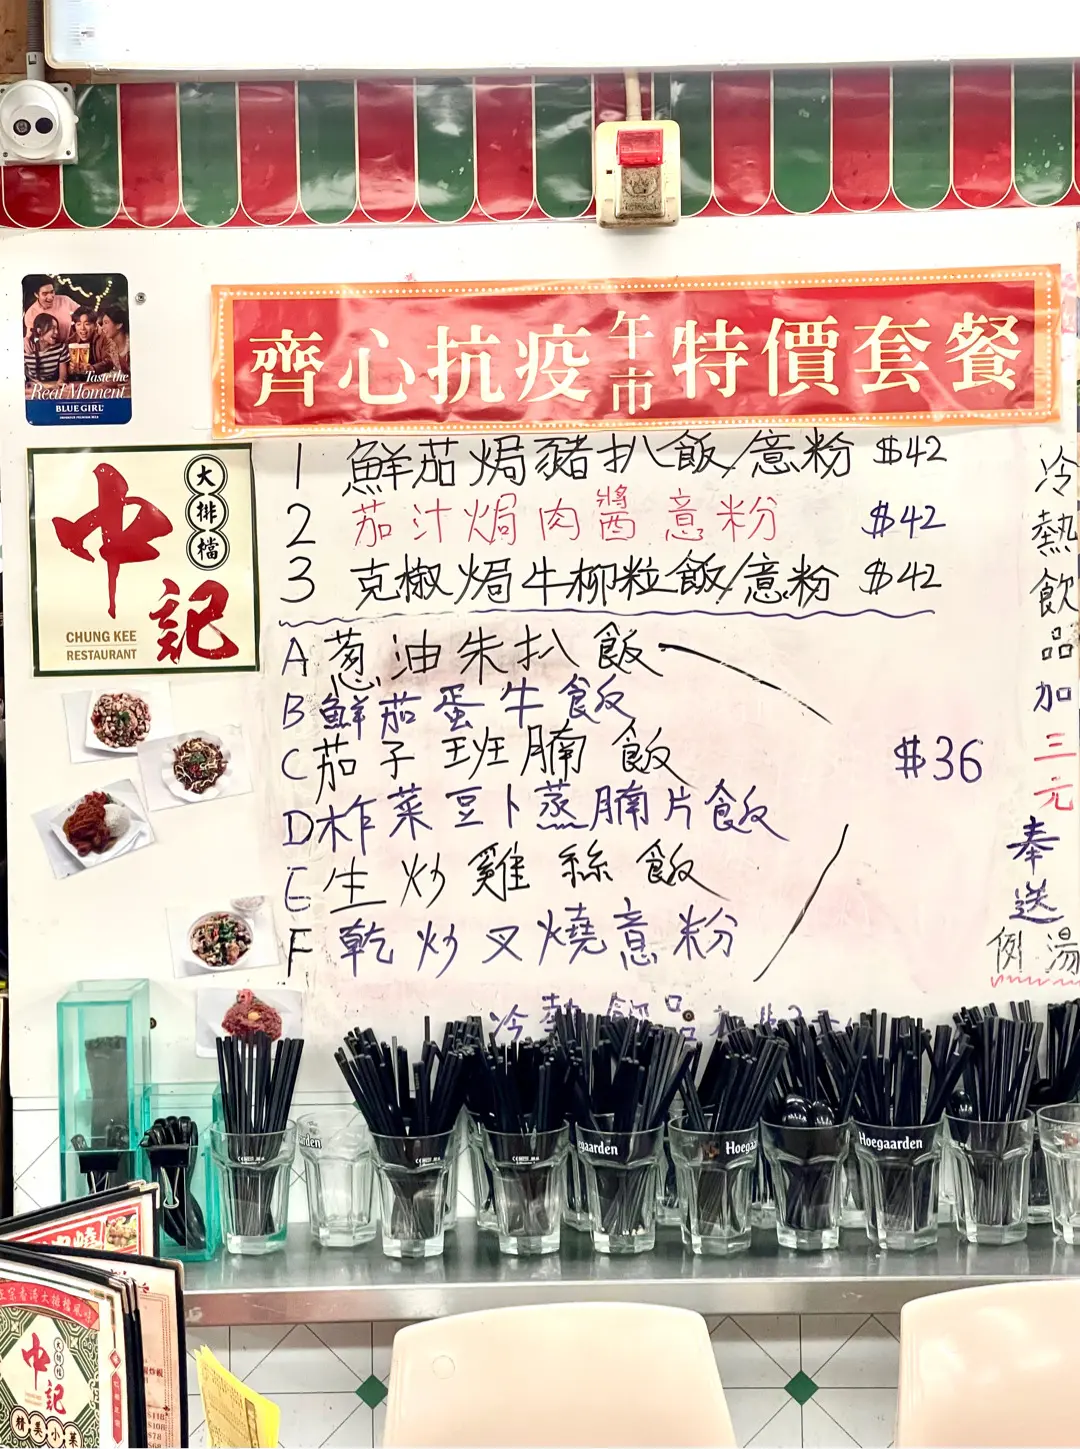 齊心抗疫午市特價套餐
Taste the
Real Moment
BLUE GIRL
大排檔
中記
CHUNG KEE
RESTAURANT
1 鮮茄焗豬扒飯/意粉 $42
2 茄汁焗肉醬意粉 $42
3 克椒焗牛柳粒飯/意粉 $42
A 葱油朱扒飯
B 鮮茄蛋牛飯
C 茄子班腩飯
D 柞菜豆卜蒸腩片飯
E 生炒雞絲飯
F 乾炒叉燒意粉
$36
冷熱飲品加三元
奉送
例湯
冷熱飲品
Hoegaarden
大排檔
中記
精美小菜